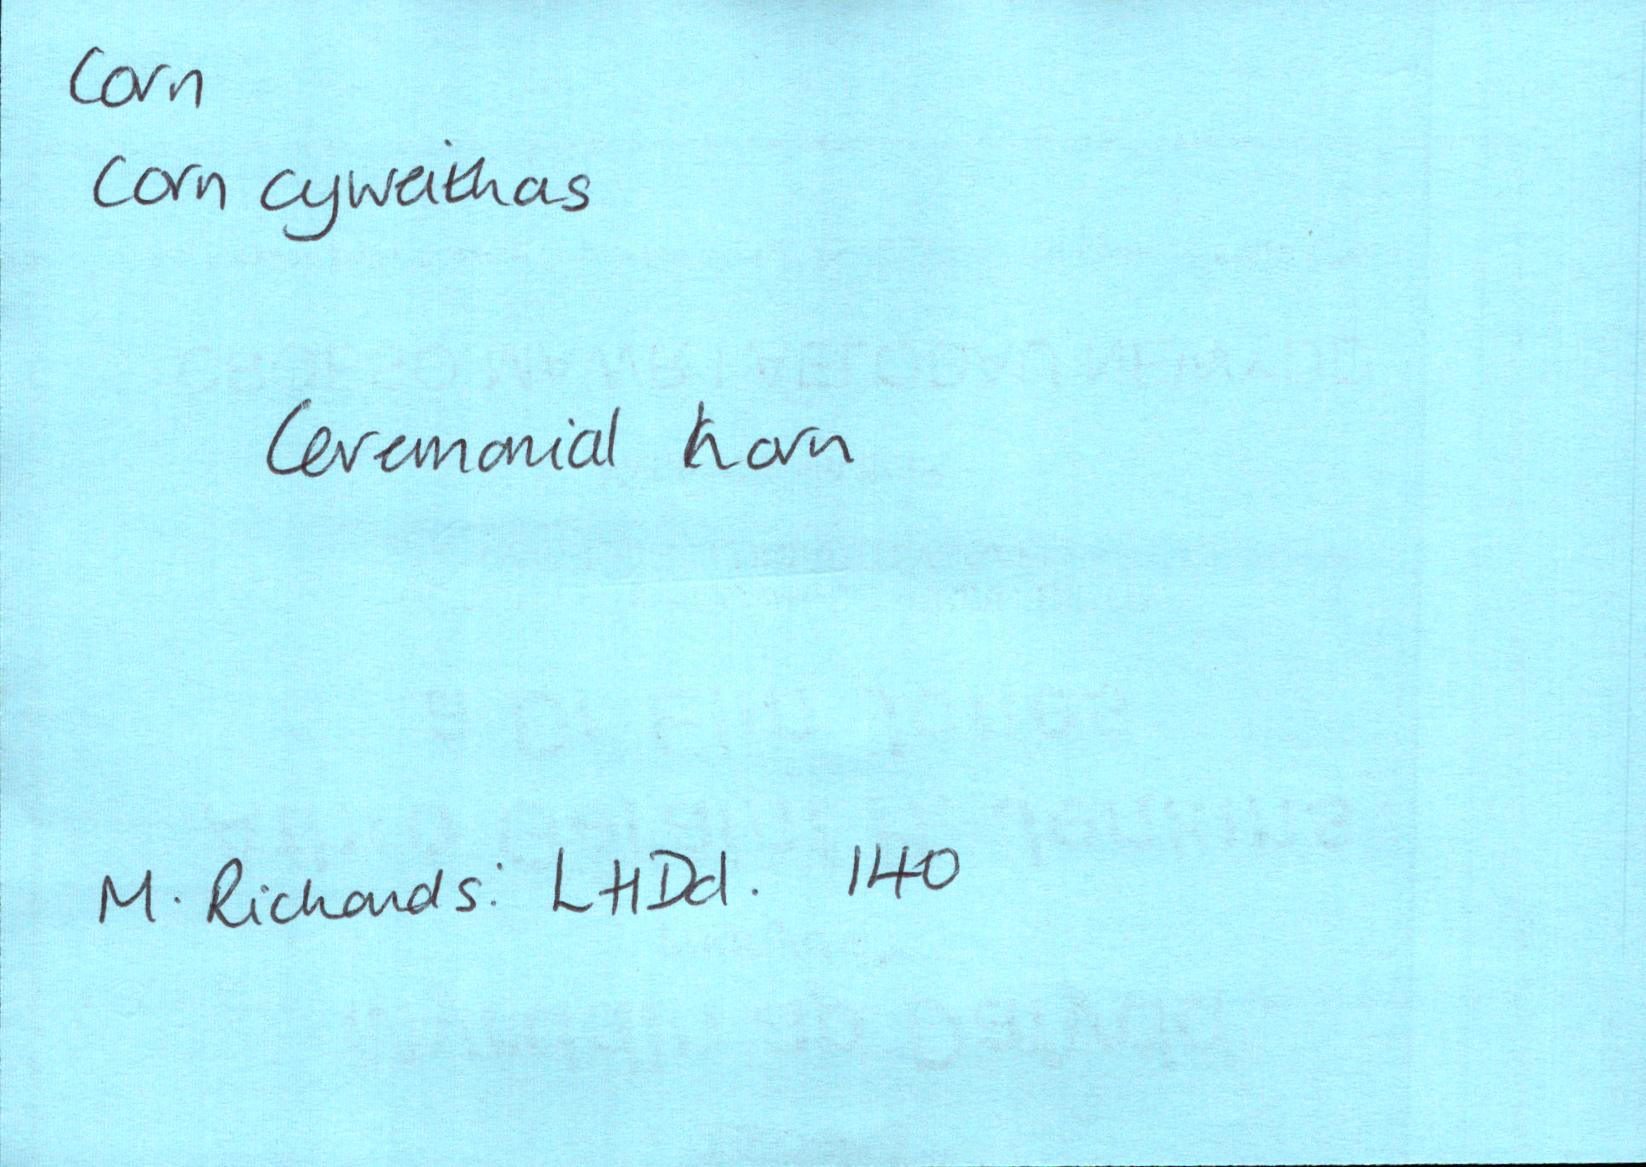 Corn
Corn cyweithas
Ceremonial horn
M. Richards: LHDd. 140